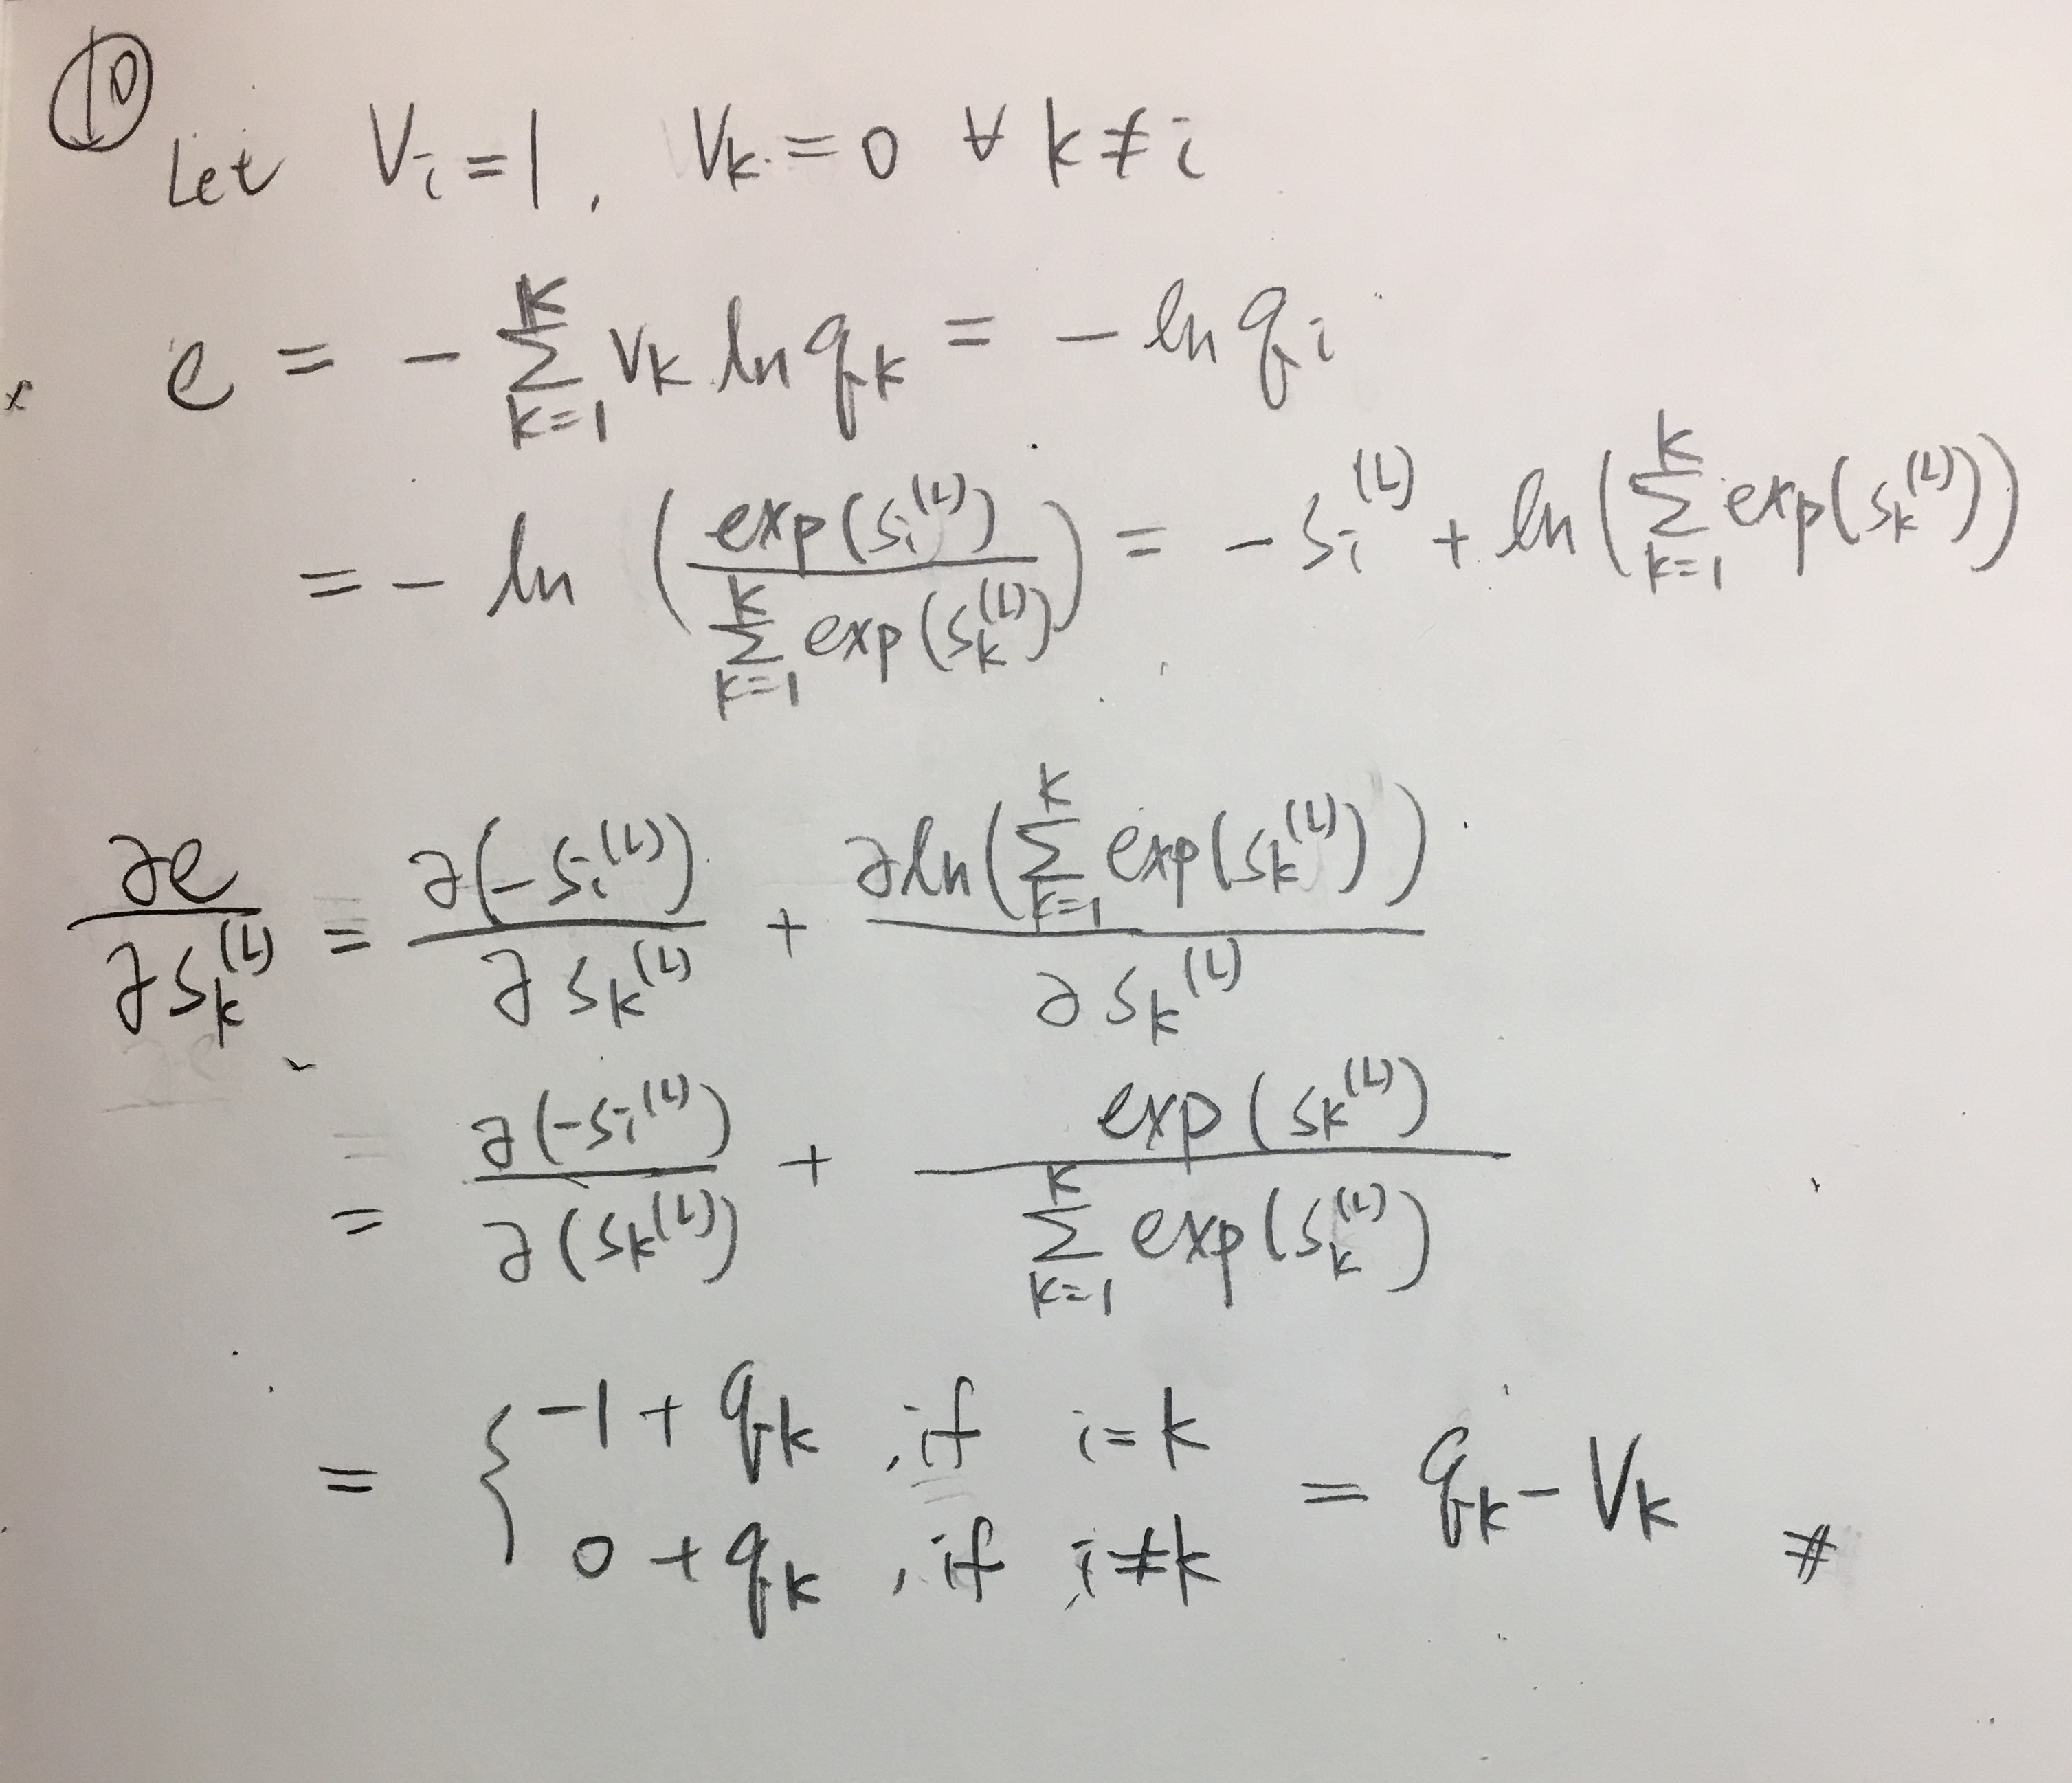 ⑩
Let V_i = 1, V_k = 0 ∀ k ≠ i
e = - \sum_{k=1}^{K} v_k ln q_k = - ln q_i
= - ln ( \frac{exp(s_i^{(L)})}{\sum_{k=1}^{K} exp(s_k^{(L)})} ) = - s_i^{(L)} + ln ( \sum_{k=1}^{K} exp(s_k^{(L)}) )
\frac{∂e}{∂s_k^{(L)}} = \frac{∂(-s_i^{(L)})}{∂s_k^{(L)}} + \frac{∂ln(\sum_{k=1}^{K} exp(s_k^{(L)}))}{∂s_k^{(L)}}
= \frac{∂(-s_i^{(L)})}{∂(s_k^{(L)})} + \frac{exp(s_k^{(L)})}{\sum_{k=1}^{K} exp(s_k^{(L)})}
= { -1 + q_k , if i = k
0 + q_k , if i ≠ k = q_k - V_k #